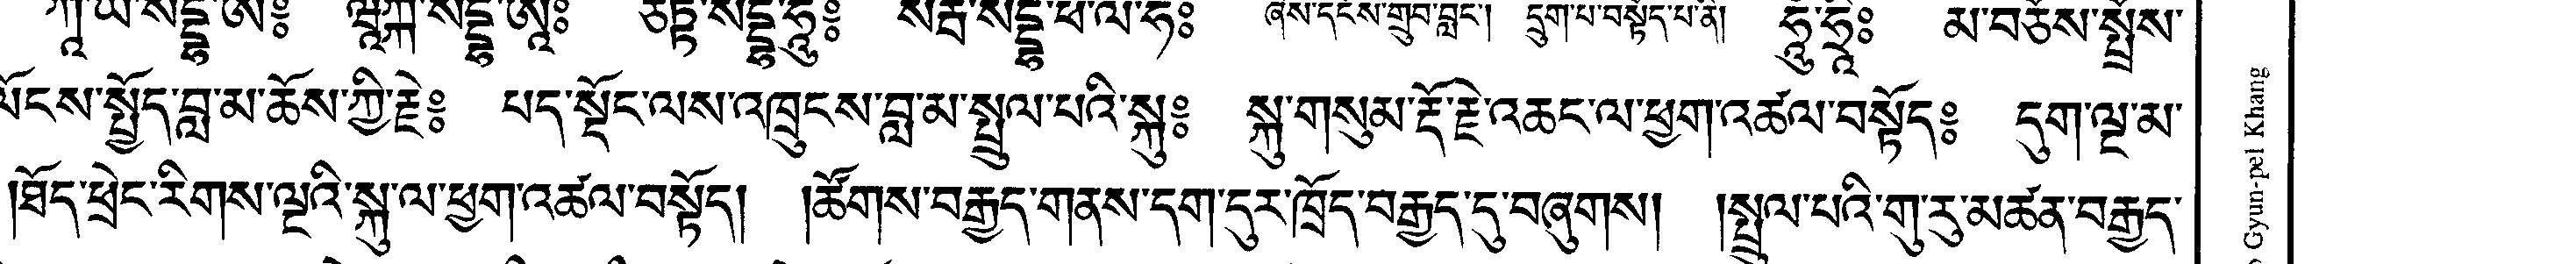 ཀཱ་ཡ་སིདྡྷི་ཨཿ ཝཱཀྐ་སིདྡྷི་ཨཱཿ ཙིཏྟ་སིདྡྷི་ཧཱུྃ༔ སརྦ་སིདྡྷི་ཕ་ལ་ཧོ༔ ཞེས་དངོས་གྲུབ་བླང་། དྲུག་པ་བསྟོད་པ་ནི། ཧཱུྃ་ཧྲཱིཿ མ་བཅོས་སྤྲོས་
ལོངས་སྤྱོད་བླ་མ་ཆོས་ཀྱི་རྗེ༔ པད་སྡོང་ལས་འཁྲུངས་བླ་མ་སྤྲུལ་པའི་སྐུ༔ སྐུ་གསུམ་རྡོ་རྗེ་འཆང་ལ་ཕྱག་འཚལ་བསྟོད༔ དུག་ལྔ་མ་
།ཐོད་ཕྲེང་རིགས་ལྔའི་སྐུ་ལ་ཕྱག་འཚལ་བསྟོད། །ཚོགས་བརྒྱད་གནས་དག་དུར་ཁྲོད་བརྒྱད་དུ་བཞུགས། །སྤྲུལ་པའི་གུ་རུ་མཚན་བརྒྱད་
Gyun-pel Khang